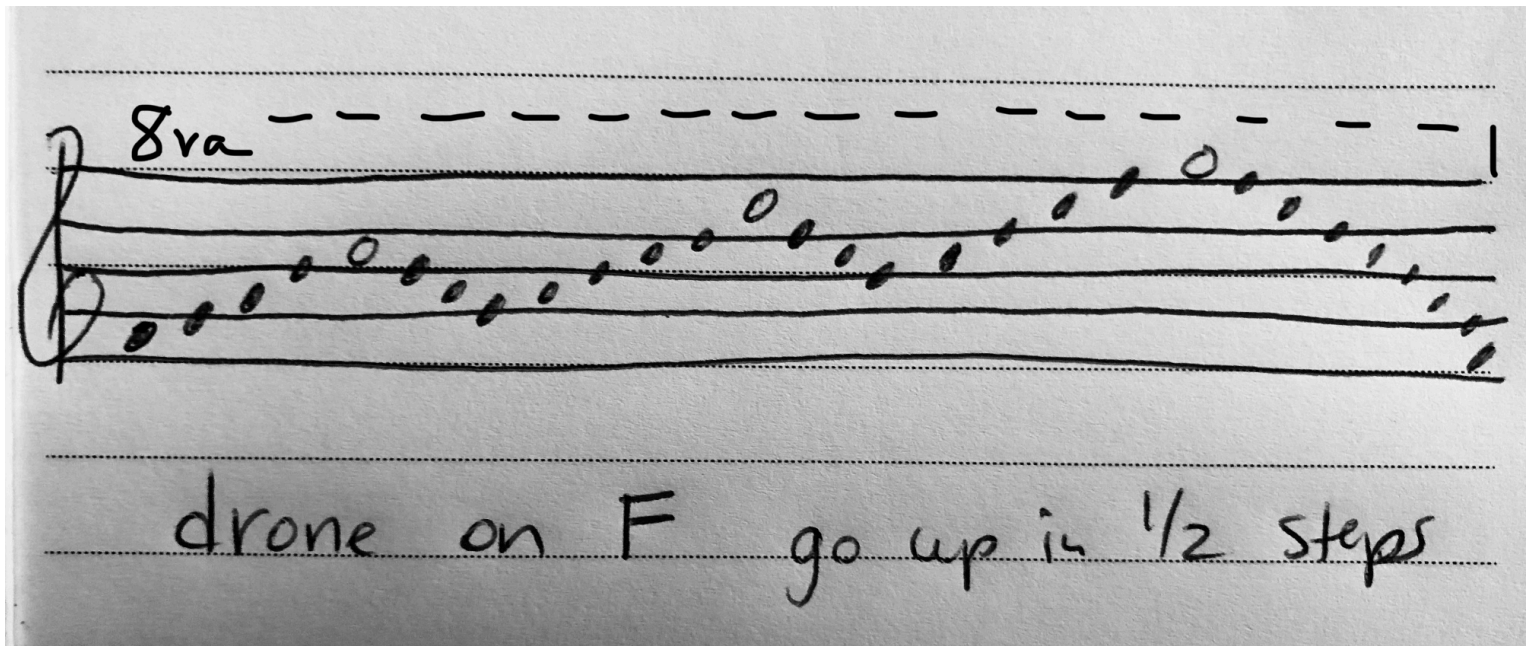 8va
drone on F go up in 1/2 steps